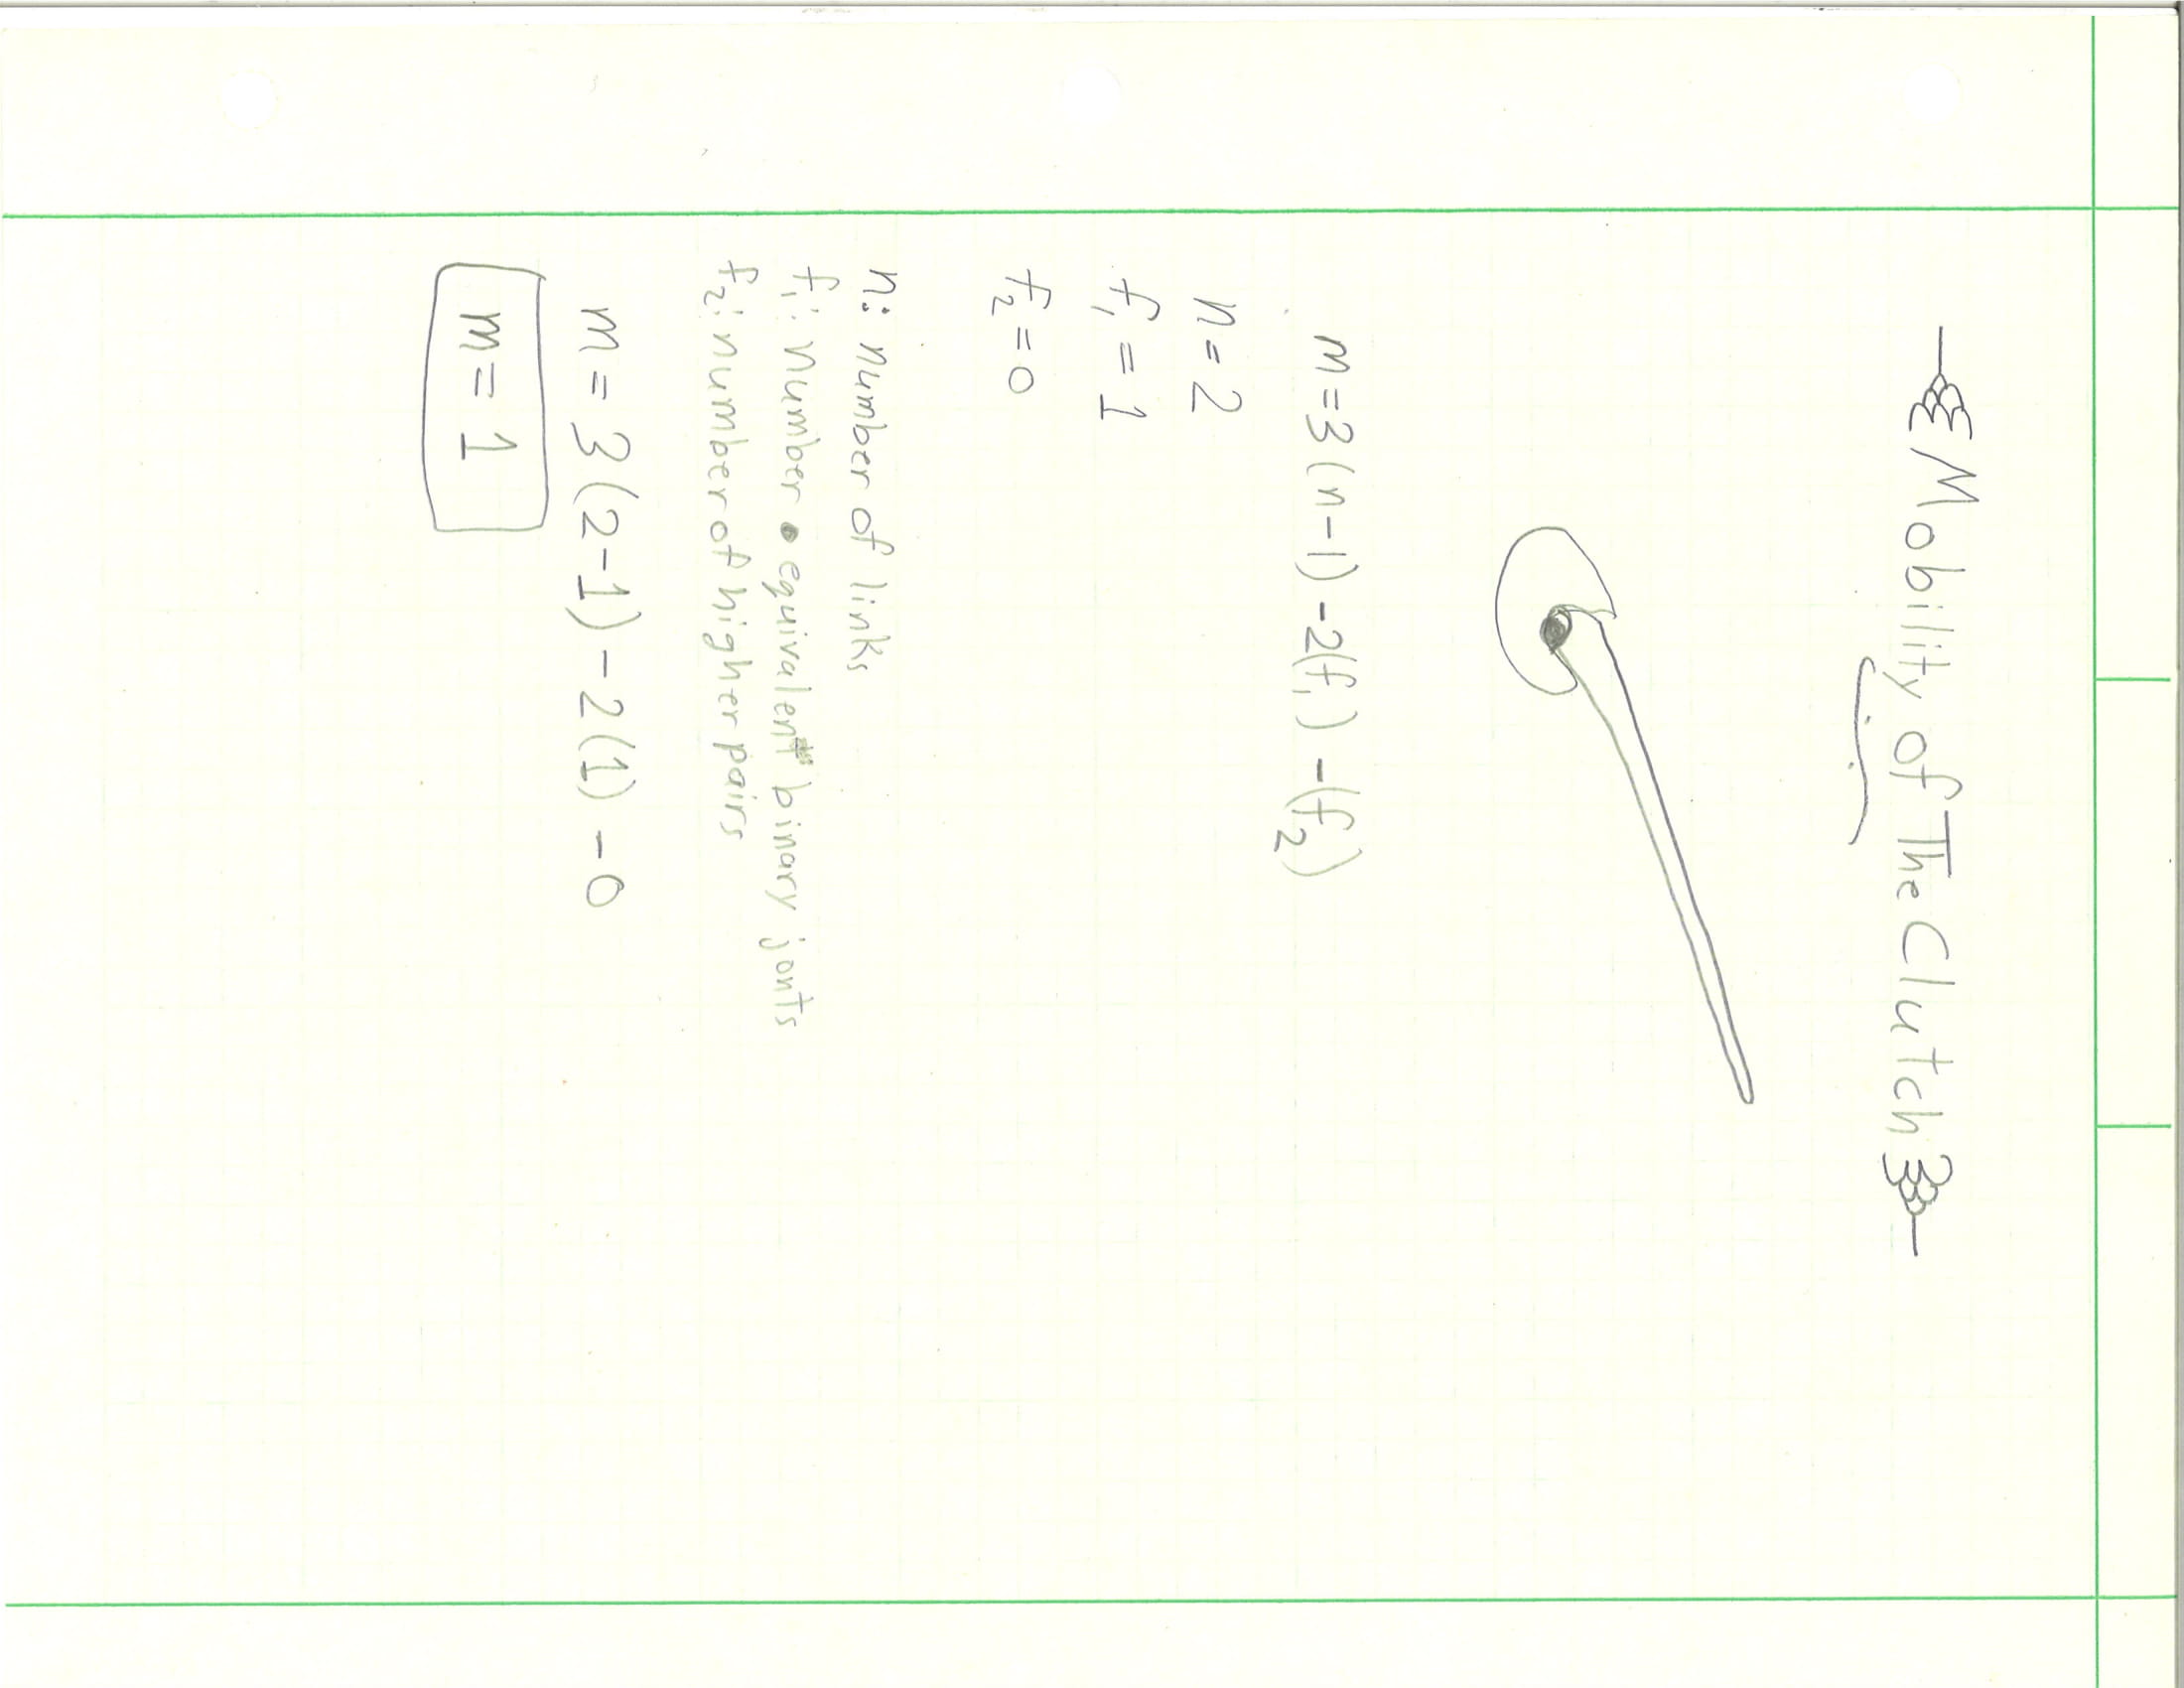 Mobility of The Clutch
m=3(n-1)-2(f₁)-(f₂)
n=2
f₁=1
f₂=0
n: number of links
f₁: number equivalent binary jonts
f₂: number of higher pairs
m=3(2-1)-2(1)-0
m=1